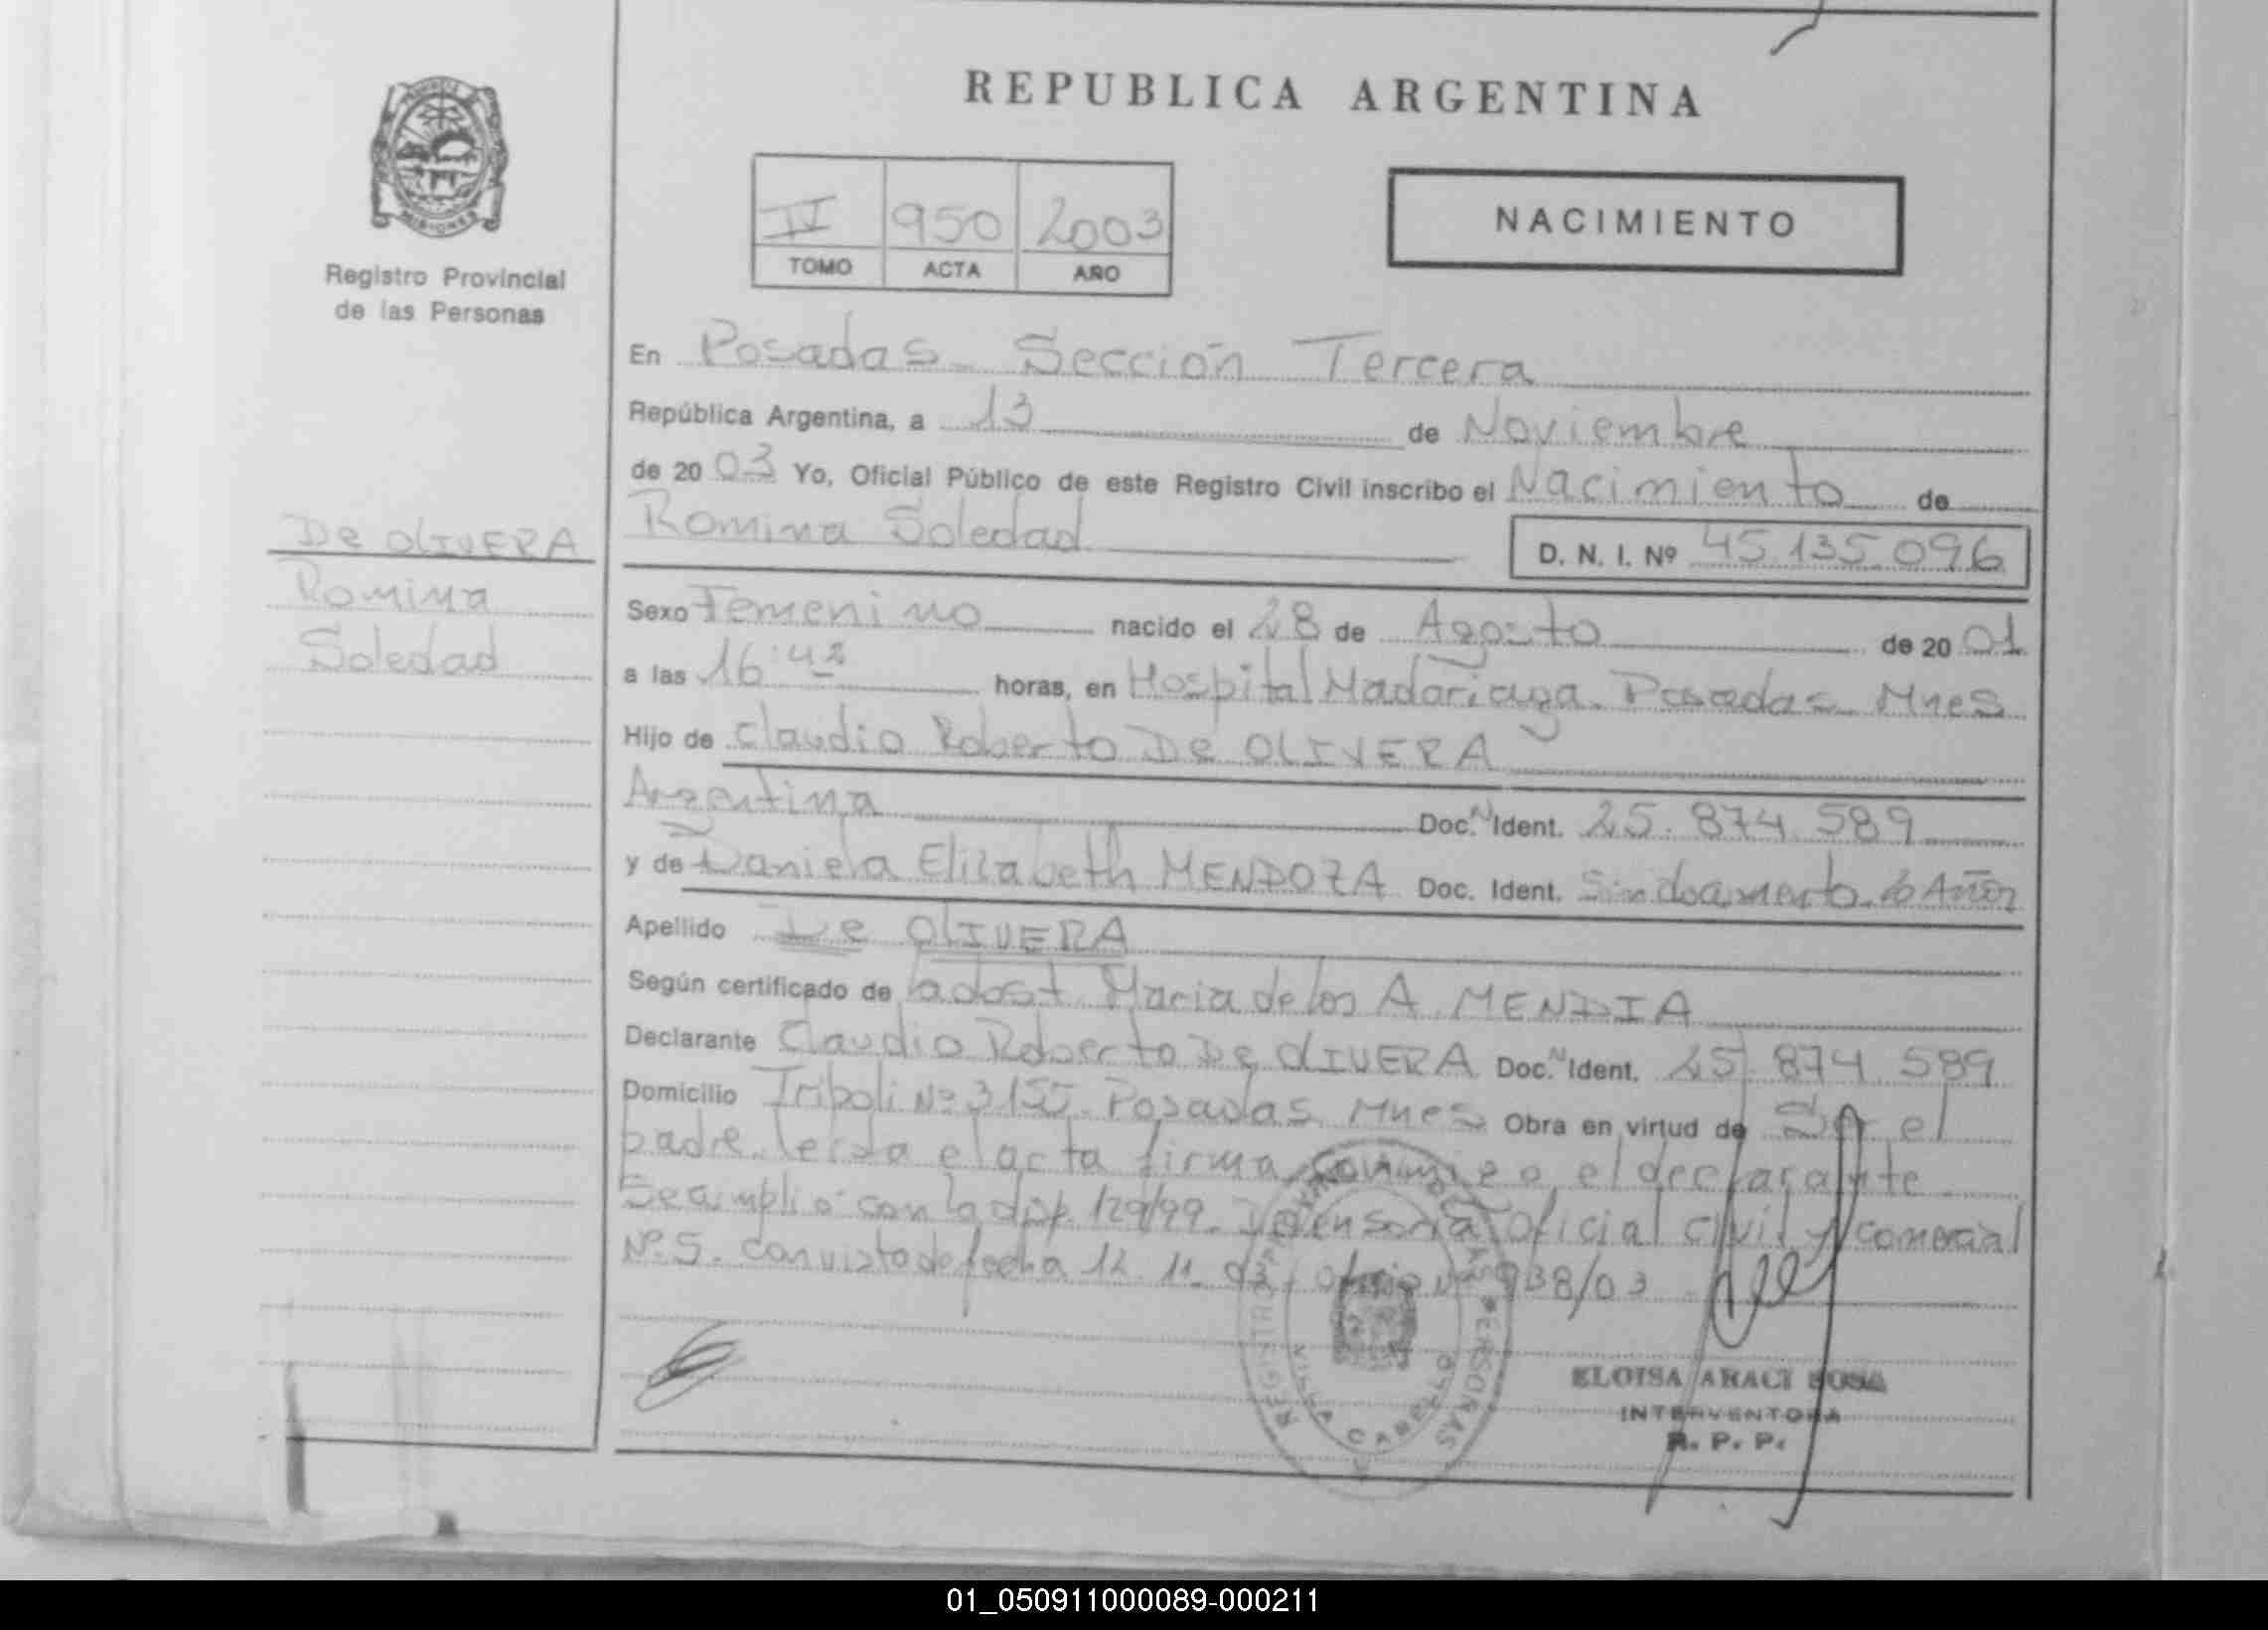 REPUBLICA ARGENTINA
IV 950 2003
TOMO ACTA AÑO
NACIMIENTO
MISIONES
Registro Provincial
de las Personas
De OLIVERA
Romina
Soledad
En Posadas - Sección Tercera
República Argentina, a 13 de Noviembre
de 20 03 Yo, Oficial Público de este Registro Civil inscribo el Nacimiento de
Romina Soledad D. N. I. Nº 45.135.096
Sexo Femenino nacido el 28 de Agosto de 20 01
a las 16:42 horas, en Hospital Madariaga. Posadas Mnes
Hijo de Claudio Roberto De OLIVERA
Argentina Doc. N Ident. 25.874.589
y de Daniela Elizabeth MENDOZA Doc. Ident. Sin documento
Apellido De OLIVERA
Según certificado de la obst. Maria de los A. MENDIA
Declarante Claudio Roberto De OLIVERA Doc. N Ident. 25.874.589
Domicilio Tripoli Nº 3155. Posadas Mnes Obra en virtud de Ser el
padre. leida el acta firma conmigo el declarante
Se amplio con la disp. 129/99. Defensoria Oficial civil y comercial
Nº 5. con visto de fecha 12.11.03, oficio Nº 938/03
REGISTRO PROVINCIAL DE LAS PERSONAS
VILLA CABELLO
ELOISA ARACI SOSA
INTERVENTORA
R. P. P.
01_050911000089-000211